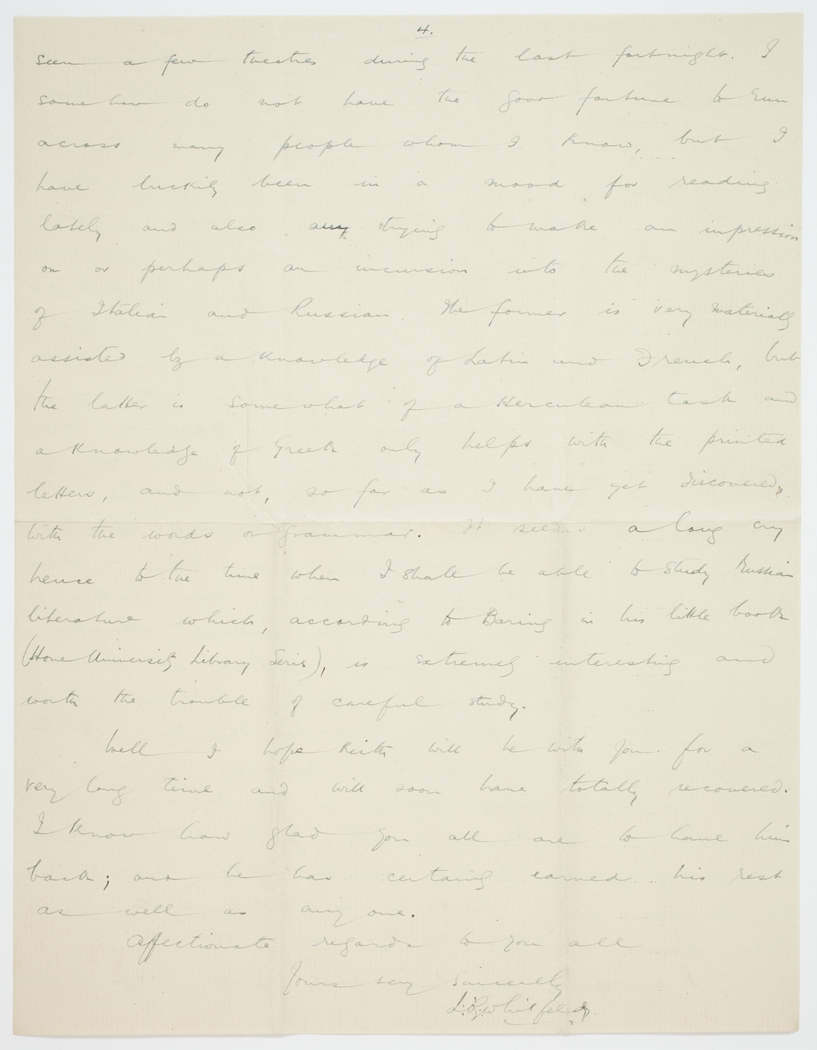 4.
seen a few theatres during the last fortnight. I
somehow do not have the good fortune to run
across many people whom I know, but I
have luckily been in a mood for reading
lately and also am trying to make an impression
on or perhaps an incursion into the mysteries
of Italian and Russian. The former is very materially
assisted by a knowledge of Latin and French, but
the latter is somewhat of a Herculean task and
a knowledge of Greek only helps with the printed
letters, and not, so far as I have yet discovered,
with the words or grammar. It seems a long cry
hence to the time when I shall be able to study Russian
literature which, according to Baring in his little book
(Home University Library Series), is extremely interesting and
worth the trouble of careful study.
Well I hope Keith will be with you for a
very long time and will soon have totally recovered.
I know how glad you all are to have him
back; and he has certainly earned his rest
as well as any one.
Affectionate regards to you all
Yours very sincerely
Whitfield